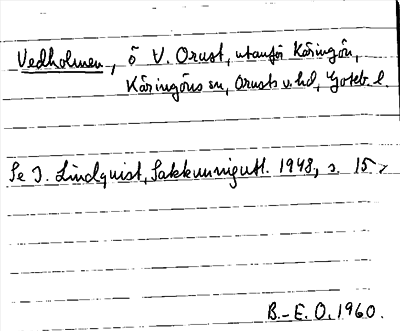 Vedholmen, ö V. Orust, utanför Käringön,
Käringöns sn, Orusts v. hd, Goteb. l.
Se I. Lindquist, Sakkunnigutl. 1948, s. 15.
B.-E. O. 1960.